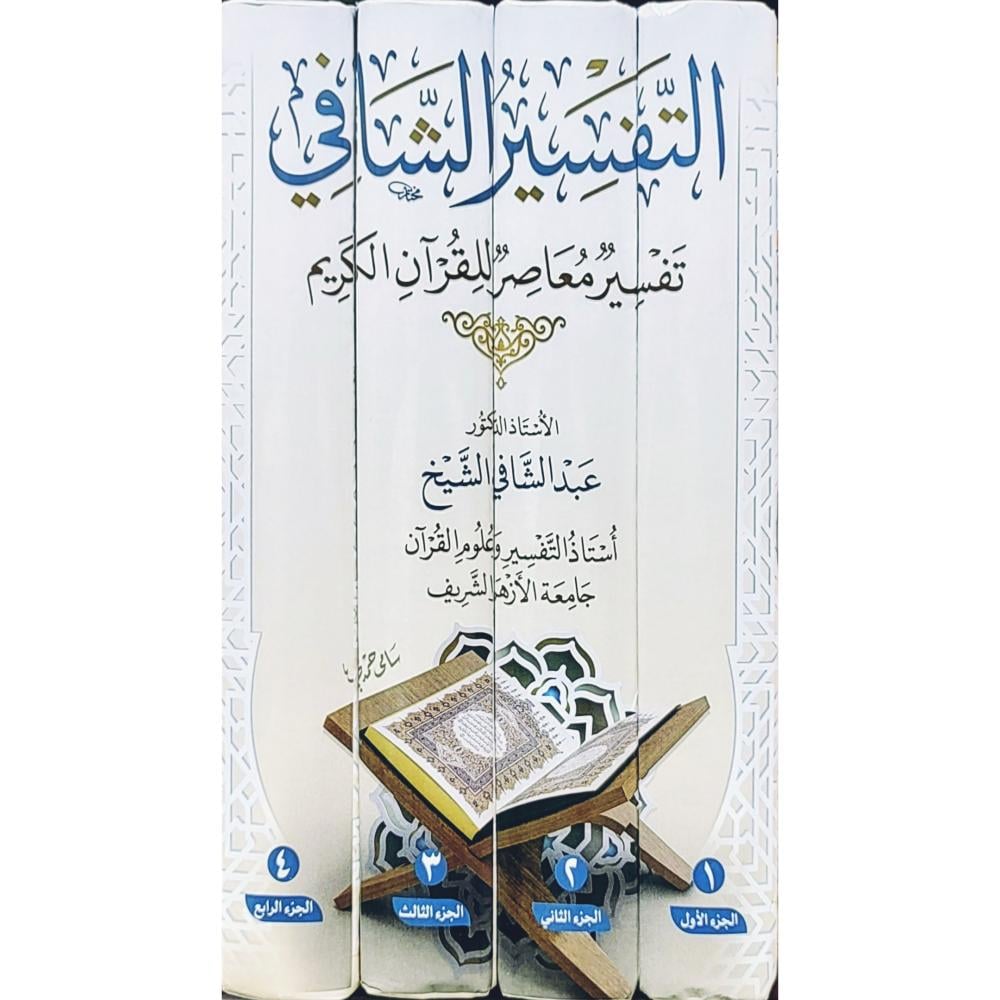 التَّفْسِيرُ الشَّافِي
تَفْسِيرٌ مُعَاصِرٌ لِلْقُرْآنِ الكَرِيم
الأُسْتَاذ الدكتُور
عَبْد الشَّافِي الشَّيْخ
أُسْتَاذُ التَّفْسِيرِ وَعُلُومِ القُرْآن
جَامِعَة الأَزْهَر الشَّرِيف
١
الجزء الأول
٢
الجزء الثاني
٣
الجزء الثالث
٤
الجزء الرابع